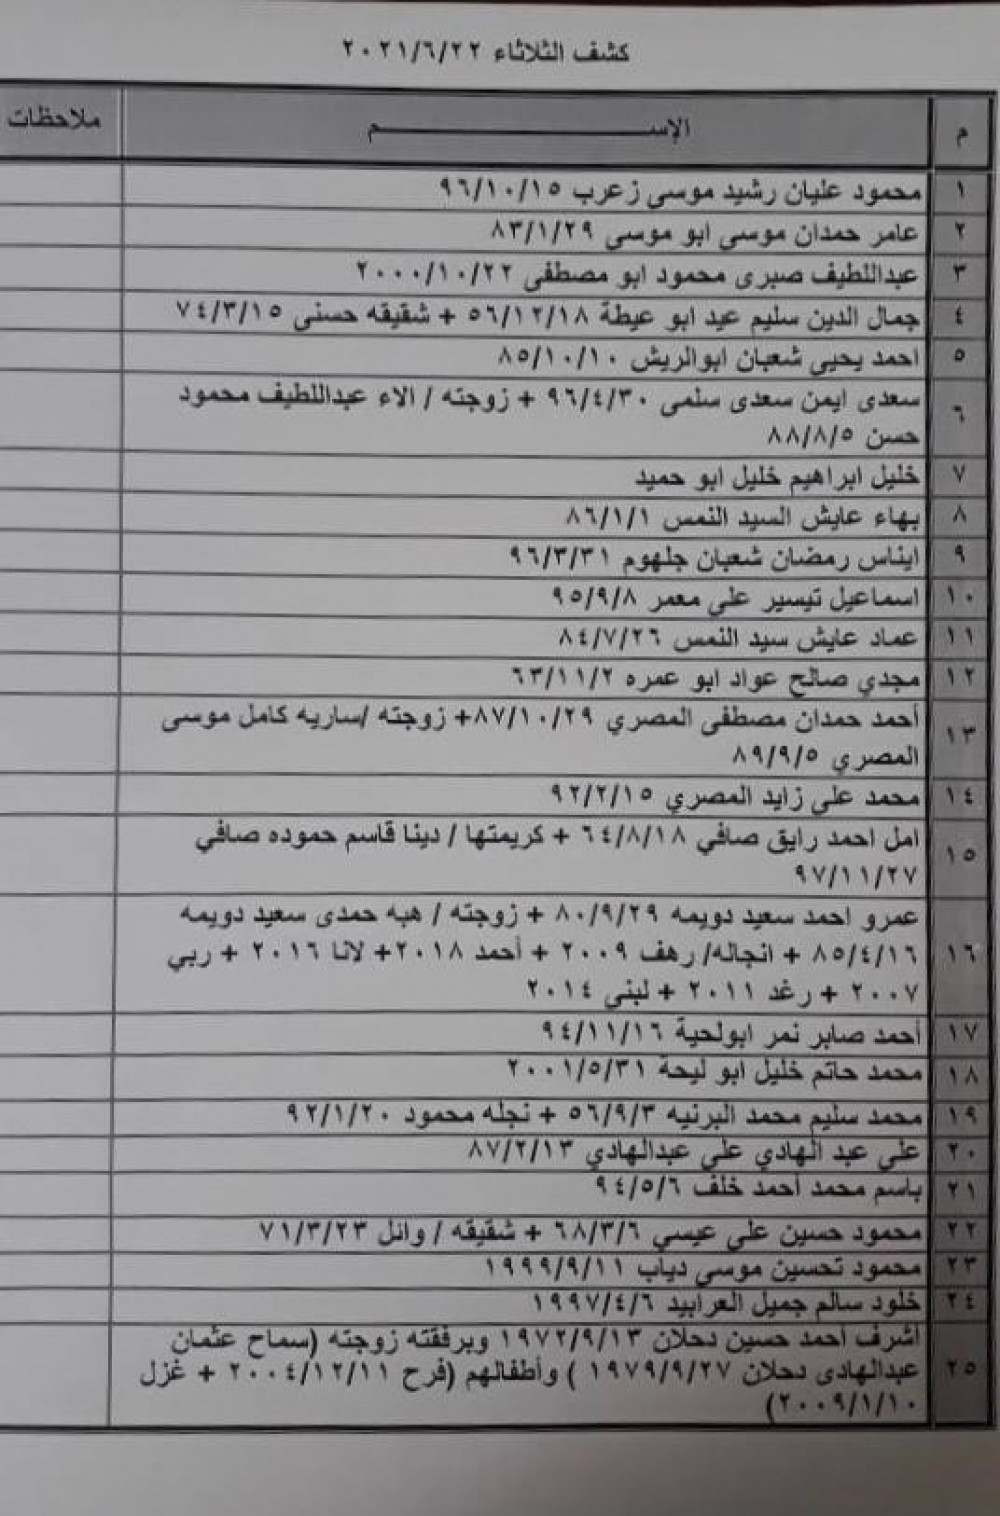 كشف الثلاثاء ٢٠٢١/٦/٢٢
م الإســـــــم ملاحظات
١ محمود عليان رشيد موسى زعرب ٩٦/١٠/١٥
٢ عامر حمدان موسى ابو موسى ٨٣/١/٢٩
٣ عبداللطيف صبرى محمود ابو مصطفى ٢٠٠٠/١٠/٢٢
٤ جمال الدين سليم عيد ابو عيطة ٥٦/١٢/١٨ + شقيقه حسنى ٧٤/٣/١٥
٥ احمد يحيى شعبان ابوالريش ٨٥/١٠/١٠
٦ سعدى ايمن سعدى سلمى ٩٦/٤/٣٠ + زوجته / الاء عبداللطيف محمود
حسن ٨٨/٨/٥
٧ خليل ابراهيم خليل ابو حميد
٨ بهاء عايش السيد النمس ٨٦/١/١
٩ ايناس رمضان شعبان جلهوم ٩٦/٣/٣١
١٠ اسماعيل تيسير علي معمر ٩٥/٩/٨
١١ عماد عايش سيد النمس ٨٤/٧/٢٦
١٢ مجدي صالح عواد ابو عمره ٦٣/١١/٢
١٣ أحمد حمدان مصطفى المصري ٨٧/١٠/٢٩+ زوجته /ساريه كامل موسى
المصري ٨٩/٩/٥
١٤ محمد علي زايد المصري ٩٢/٢/١٥
١٥ امل احمد رايق صافي ٦٤/٨/١٨ + كريمتها / دينا قاسم حموده صافي
٩٧/١١/٢٧
١٦ عمرو احمد سعيد دويمه ٨٠/٩/٢٩ + زوجته / هبه حمدى سعيد دويمه
٨٥/٤/١٦ + انجاله/ رهف ٢٠٠٩ + أحمد ٢٠١٨+ لانا ٢٠١٦ + ربي
٢٠٠٧ + رغد ٢٠١١ + لبني ٢٠١٤
١٧ أحمد صابر نمر ابولحية ٩٤/١١/١٦
١٨ محمد حاتم خليل ابو ليحة ٢٠٠١/٥/٣١
١٩ محمد سليم محمد البرنيه ٥٦/٩/٣ + نجله محمود ٩٢/١/٢٠
٢٠ علي عبد الهادي علي عبدالهادي ٨٧/٢/١٣
٢١ باسم محمد أحمد خلف ٩٤/٥/٦
٢٢ محمود حسين علي عيسي ٦٨/٣/٦ + شقيقه / وائل ٧١/٣/٢٣
٢٣ محمود تحسين موسي دياب ١٩٩٩/٩/١١
٢٤ خلود سالم جميل العرابيد ١٩٩٧/٤/٦
٢٥ اشرف أحمد حسين دحلان ١٩٧٢/٩/١٣ وبرفقته زوجته (سماح عثمان
عبدالهادى دحلان ١٩٧٩/٩/٢٧ ) وأطفالهم (فرح ٢٠٠٤/١٢/١١ + غزل
٢٠٠٩/١/١٠)